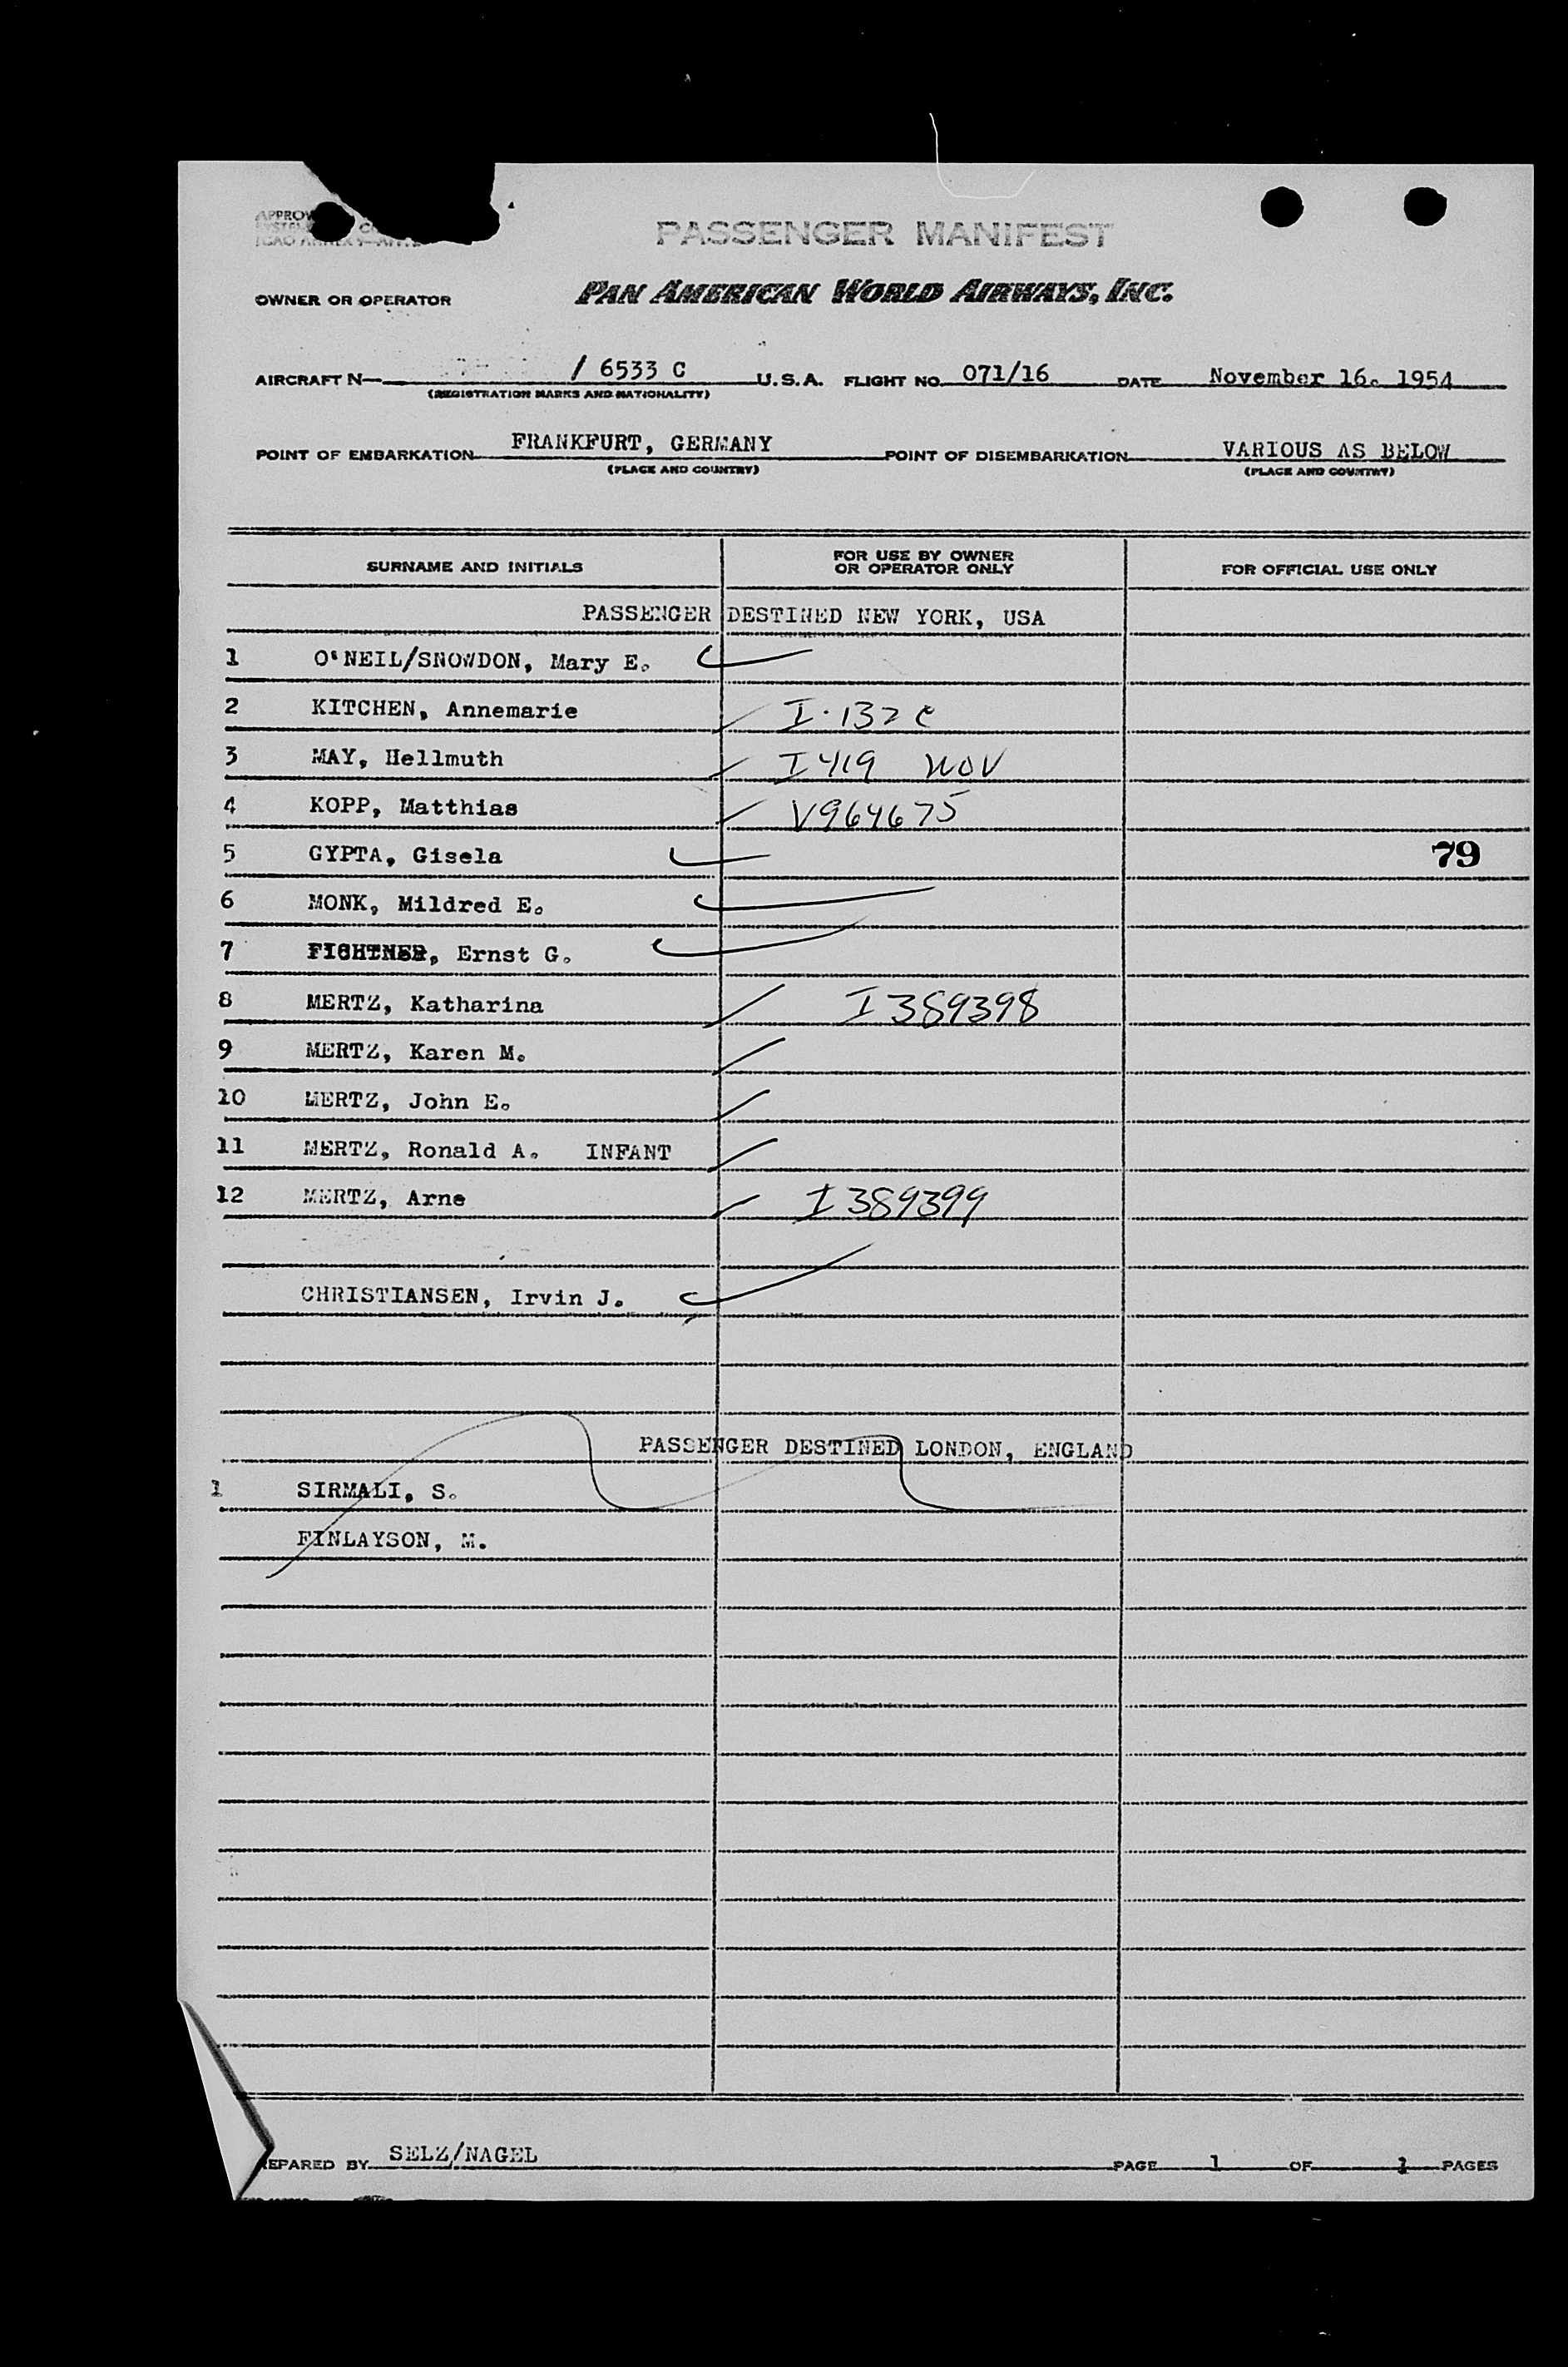 PASSENGER MANIFEST
OWNER OR OPERATOR PAN AMERICAN WORLD AIRWAYS, INC.
AIRCRAFT N— / 6533 C U.S.A. FLIGHT NO. 071/16 DATE November 16. 1954
(REGISTRATION MARKS AND NATIONALITY)
POINT OF EMBARKATION FRANKFURT, GERMANY POINT OF DISEMBARKATION VARIOUS AS BELOW
(PLACE AND COUNTRY) (PLACE AND COUNTRY)
SURNAME AND INITIALS FOR USE BY OWNER OR OPERATOR ONLY FOR OFFICIAL USE ONLY
PASSENGER DESTINED NEW YORK, USA
1 O'NEIL/SNOWDON, Mary E.
2 KITCHEN, Annemarie I·132 c
3 MAY, Hellmuth I 419 NOV
4 KOPP, Matthias V964675
5 GYPTA, Gisela 79
6 MONK, Mildred E.
7 Ernst G.
8 MERTZ, Katharina I 389398
9 MERTZ, Karen M.
10 MERTZ, John E.
11 MERTZ, Ronald A. INFANT
12 MERTZ, Arne I 389399
CHRISTIANSEN, Irvin J.
PASSENGER DESTINED LONDON, ENGLAND
1 SIRMALI, S.
FINLAYSON, M.
EPARED BY SELZ/NAGEL PAGE 1 OF 1 PAGES